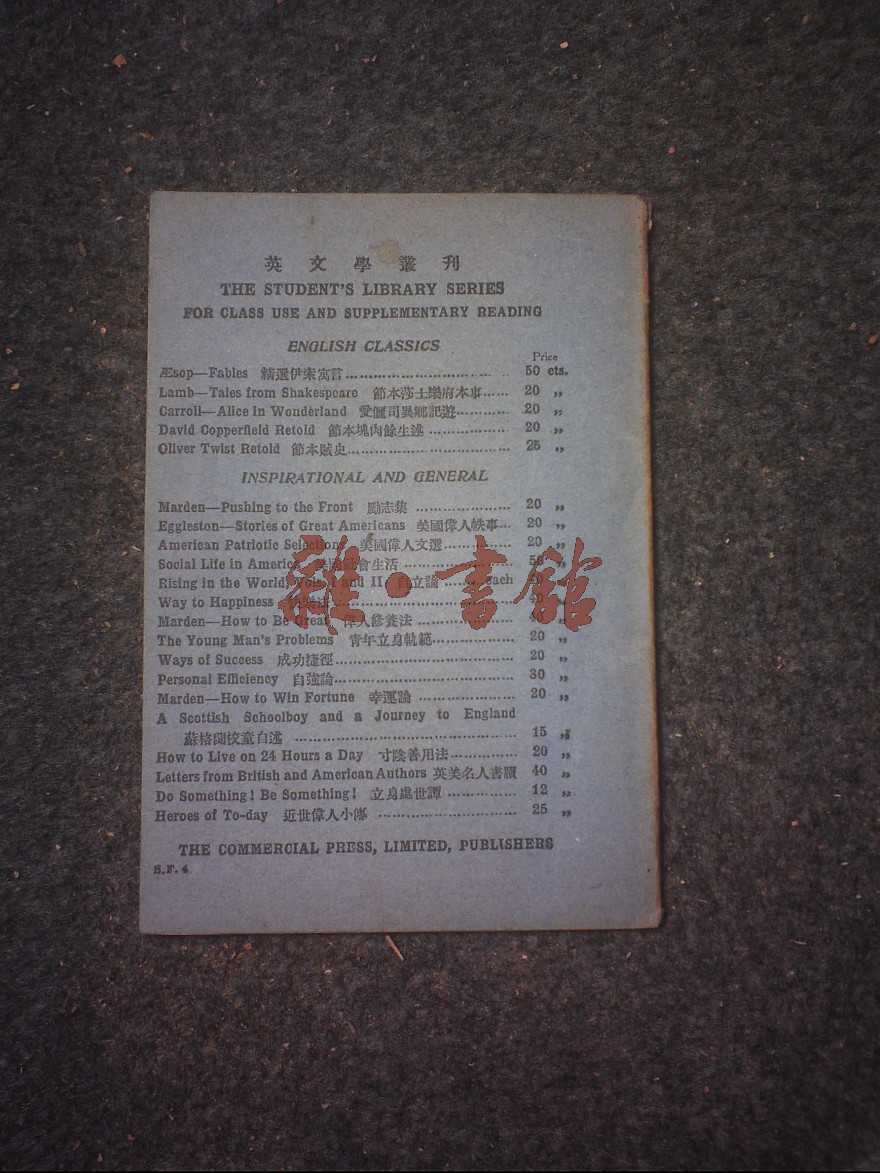 英文學叢刊
THE STUDENT'S LIBRARY SERIES
FOR CLASS USE AND SUPPLEMENTARY READING
ENGLISH CLASSICS
Price
Æsop—Fables 精選伊索寓言 50 cts.
Lamb—Tales from Shakespeare 節本莎士樂府本事 20 „
Carroll—Alice in Wonderland 愛儷司異鄉記遊 20 „
David Copperfield Retold 節本塊肉餘生述 20 „
Oliver Twist Retold 節本賊史 25 „
INSPIRATIONAL AND GENERAL
Marden—Pushing to the Front 勵志集 20 „
Eggleston—Stories of Great Americans 美國偉人軼事 20 „
American Patriotic Selections 美國偉人文選 20 „
Social Life in America 美國社會生活 50 „
Rising in the World, Vols. I and II 自立論 each „
Way to Happiness „
Marden—How to Be Great 偉人修養法 „
The Young Man's Problems 青年立身軌範 20 „
Ways of Success 成功捷徑 20 „
Personal Efficiency 自強論 30 „
Marden—How to Win Fortune 幸運論 20 „
A Scottish Schoolboy and a Journey to England
蘇格蘭校童自述 15 „
How to Live on 24 Hours a Day 寸陰善用法 20 „
Letters from British and American Authors 英美名人書牘 40 „
Do Something! Be Something! 立身處世譚 12 „
Heroes of To-day 近世偉人小傳 25 „
THE COMMERCIAL PRESS, LIMITED, PUBLISHERS
S.F. 4
雜·書館